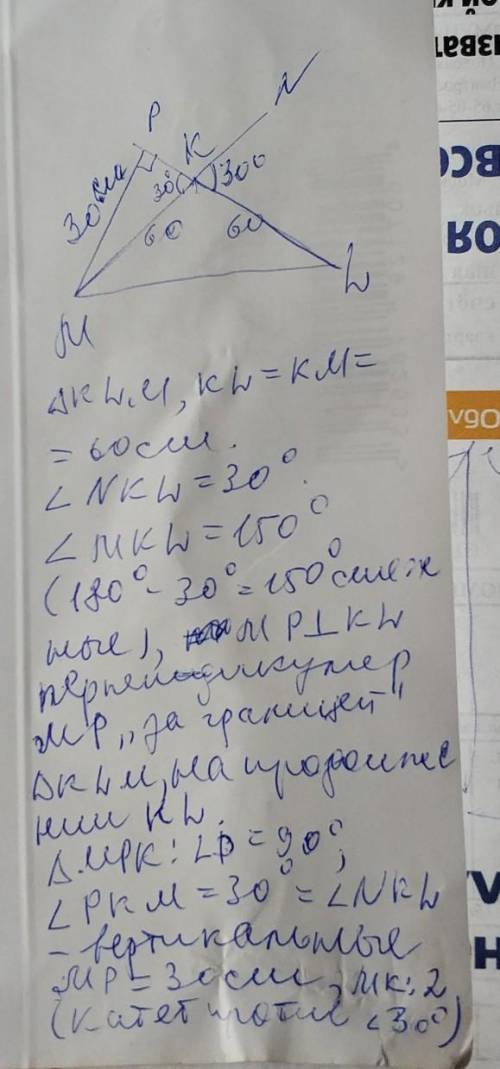 N
P
K
30см
30°
30°
60
60
L
M
ΔKLM, KL = KM =
= 60см.
∠NKL = 30°.
∠MKL = 150°
(180° - 30° = 150° смеж
ные), MP⊥KL
перпендикуляр
MP „за границей"
ΔKLM, на продолже
нии KL.
Δ MPK: ∠P = 90°,
∠PKM = 30° = ∠NKL
- вертикальные
MP = 30см, MK:2
(катет против ∠30°)
ИЗВАТ
ВСЕ
РОЯ
Обу